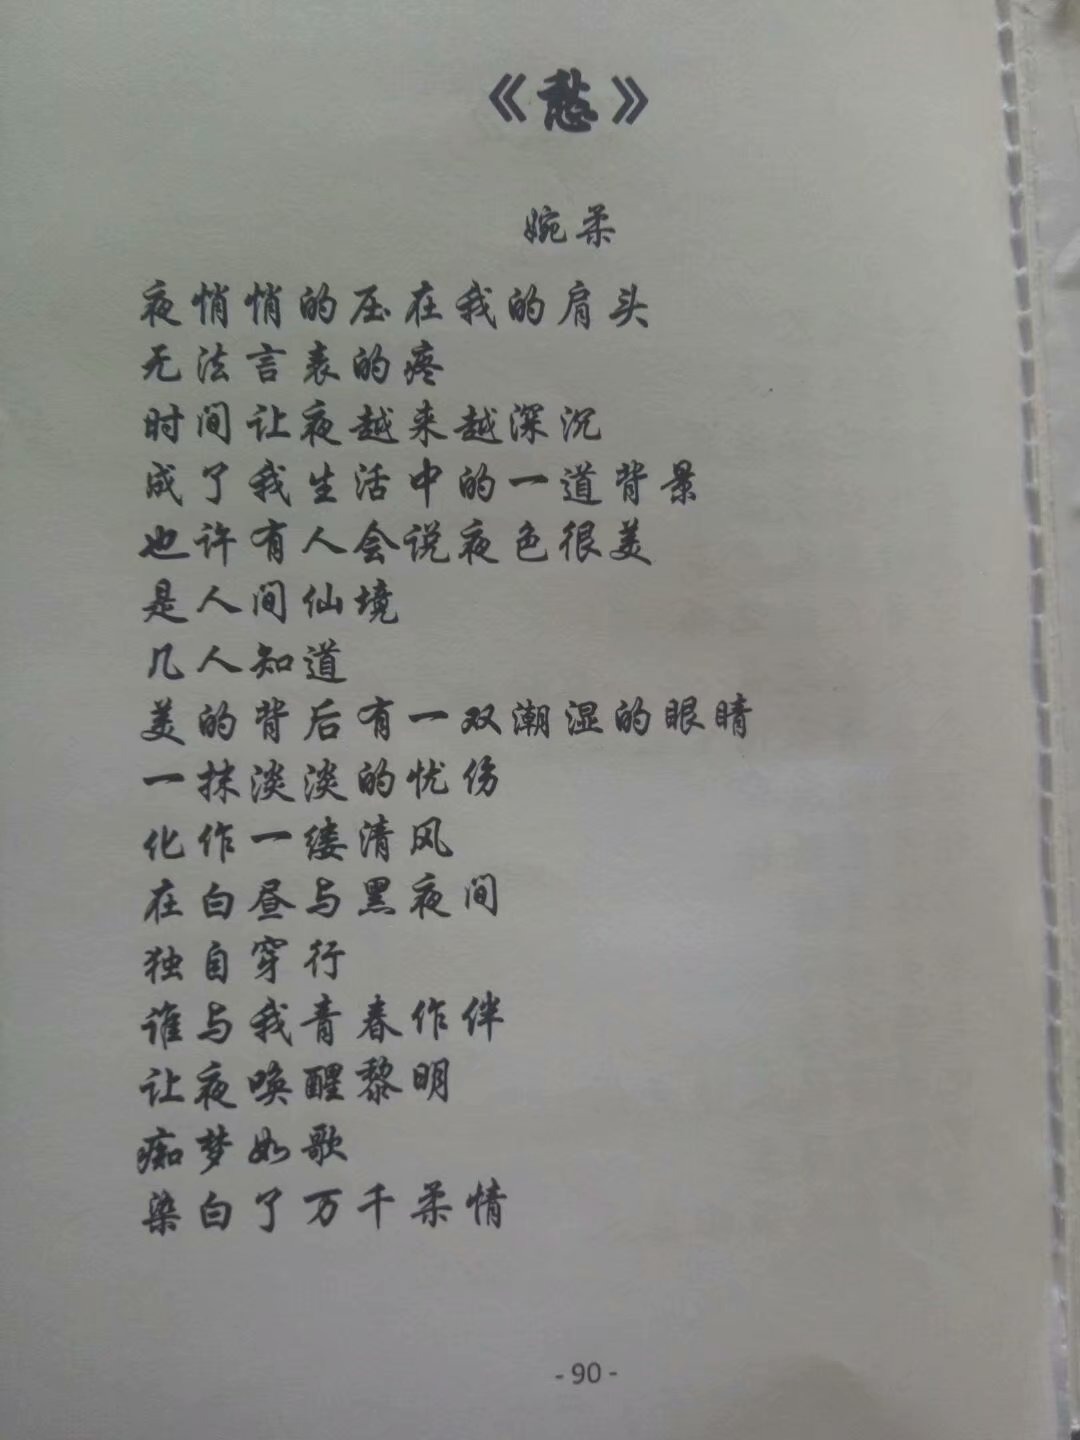 《愁》
婉柔
夜悄悄的压在我的肩头
无法言表的疼
时间让夜越来越深沉
成了我生活中的一道背景
也许有人会说夜色很美
是人间仙境
几人知道
美的背后有一双潮湿的眼睛
一抹淡淡的忧伤
化作一缕清风
在白昼与黑夜间
独自穿行
谁与我青春作伴
让夜唤醒黎明
痴梦如歌
染白了万千柔情
- 90 -